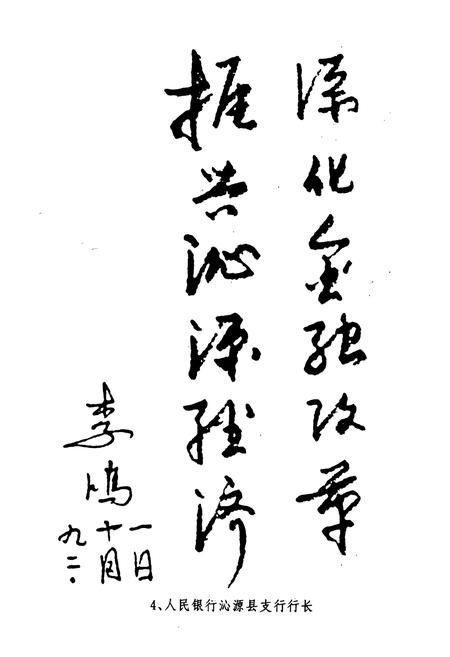 深化金融改革
振兴沁源经济
李
九二.
十月
一日
4、人民银行沁源县支行行长